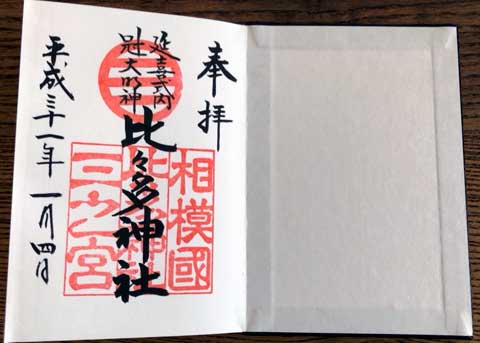 奉拝
延喜式内
冠大明神
比々多神社
平成三十一年一月四日
相模國
比々多神社
三之宮